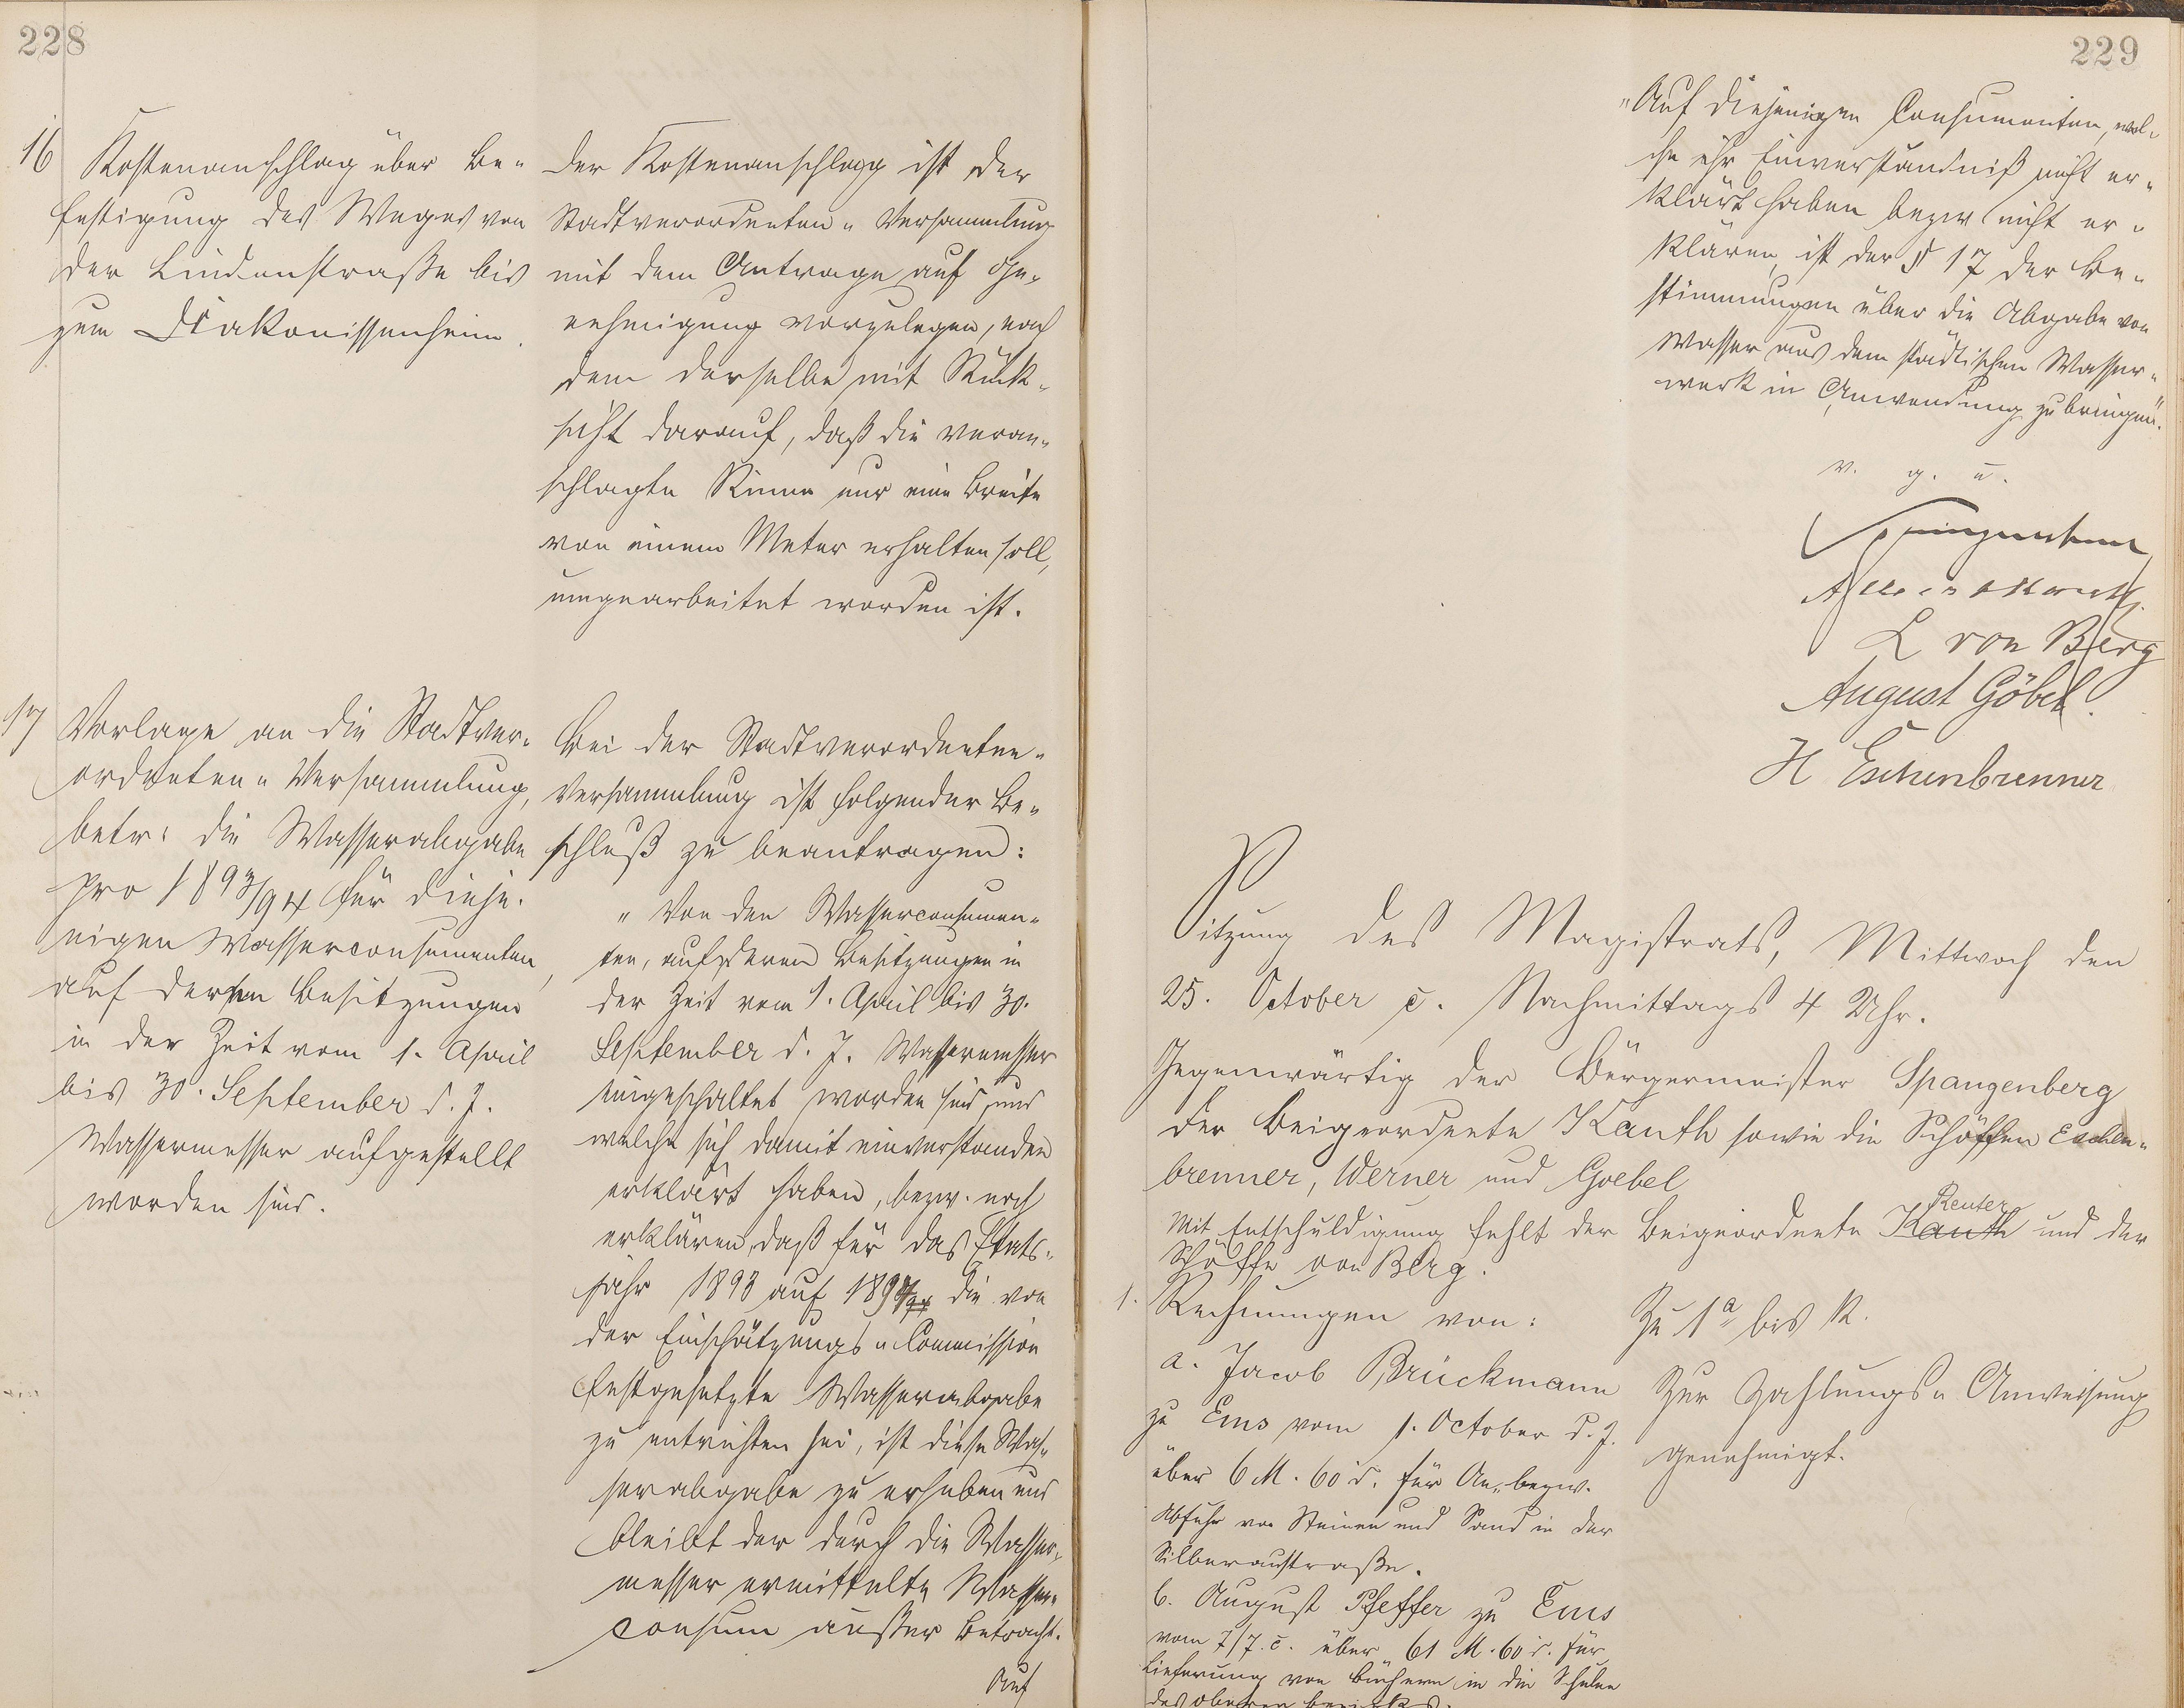 228
16 Kostenanschlag über Be-
festigung des Weges von
der Lindenstraße bis
zum Diakonissenheim.
Der Kostenanschlag ist der
Stadtverordneten-Versammlung
mit dem Antrage auf Ge-
nehmigung vorzulegen, nach
dem derselbe mit Rück-
sicht darauf, daß die veran-
schlagte Rinne nur eine Breite
von einem Meter erhalten soll,
umgearbeitet worden ist.
17 Vorlage an die Stadtver-
ordneten-Versammlung,
betr. die Wasserabgabe
pro 1893/94 für dieje-
nigen Wasserconsumenten,
auf deren Besitzungen
in der Zeit vom 1. April
bis 30. September d. J.
Wassermesser aufgestellt
worden sind.
Bei der Stadtverordneten-
Versammlung ist folgender Be-
schluß zu beantragen:
"Von den Wasserconsumen-
ten, auf deren Besitzungen in
der Zeit vom 1. April bis 30.
September d. J. Wassermesser
eingeschaltet worden sind und
welche sich damit einverstanden
erklärt haben, bezw. noch
erklären, daß für das Etats-
jahr 1893 auf 1894 die von
der Einschätzungs-Commission
festgesetzte Wasserabgabe
zu entrichten sei, ist diese Was-
serabgabe zu erheben und
bleibt der durch die Wasser-
messer ermittelte Wasser-
consum außer Betracht.
Auf
229
"Auf diejenigen Consumenten, wel-
che ihr Einverständniß nicht er-
klärt haben bezw. nicht er-
klären, ist der § 17 der Be-
stimmungen über die Abgabe von
Wasser aus dem städtischen Wasser-
werk in Anwendung zu bringen."
v. g. u.
Spangenberg
L von Berg
August Göbel.
H Eschenbrenner
Sitzung des Magistrats, Mittwoch den
25. October c. Nachmittags 4 Uhr.
Gegenwärtig der Bürgermeister Spangenberg
der Beigeordnete Kauth sowie die Schöffen Eschen-
brenner, Werner und Goebel
Mit Entschuldigung fehlt der Beigeordnete Kauth Reuter und der
Schöffe von Berg.
1. Rechnungen von:
a. Jacob Brückmann
zu Ems vom 1. October d. J.
über 6 M. 60 d. für An- bezw.
Abfuhr von Steinen und Sand in der
Silberaustraße.
b. August Pfeffer zu Ems
vom 7/7. c. über 61 M. 60 d. für
Lieferung von Büchern in die Schulen
des oberen Bezirks.
Zu 1a bis k.
Zur Zahlungs-Anweisung
genehmigt.